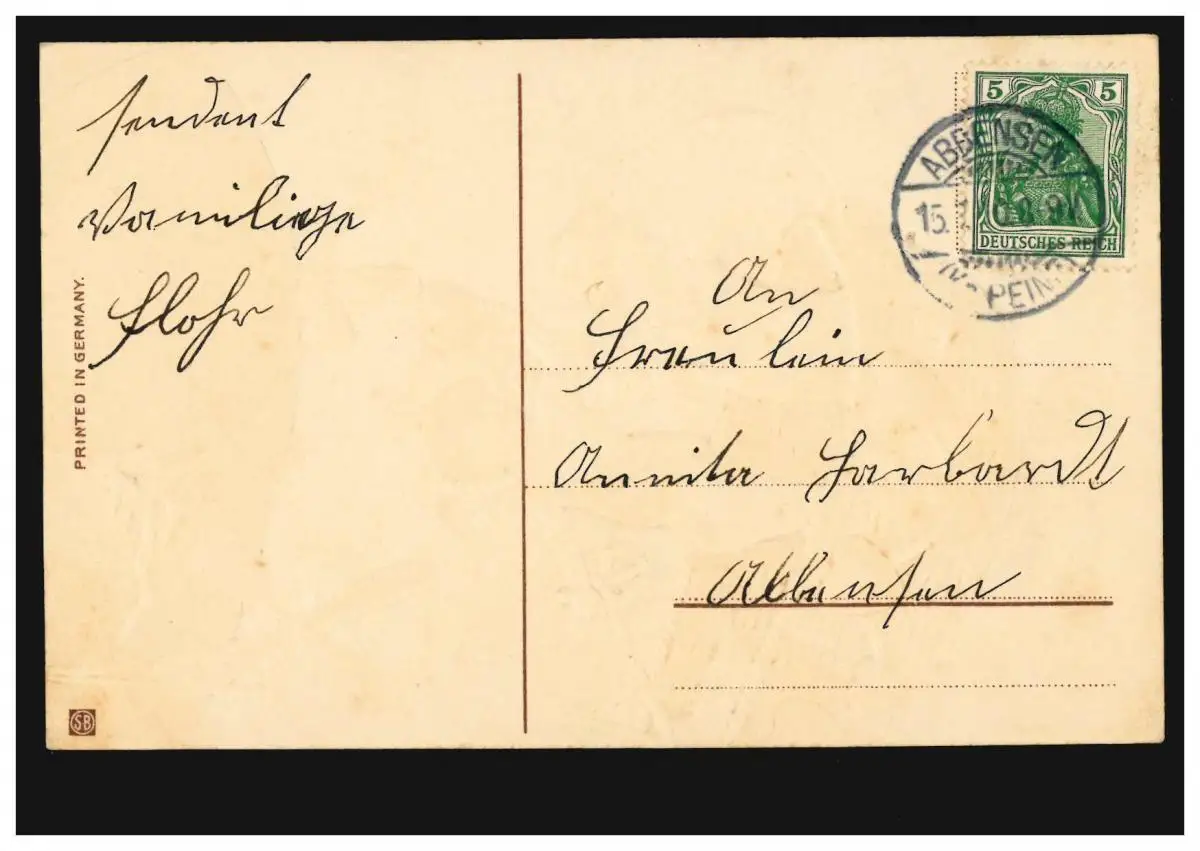 sendent
Vamiliege
Flohr
PRINTED IN GERMANY.
SB
5 5
DEUTSCHES REICH
ABBENSEN
15.
PEIN
An
Fräulein
Annita Harbardt
Abbensen